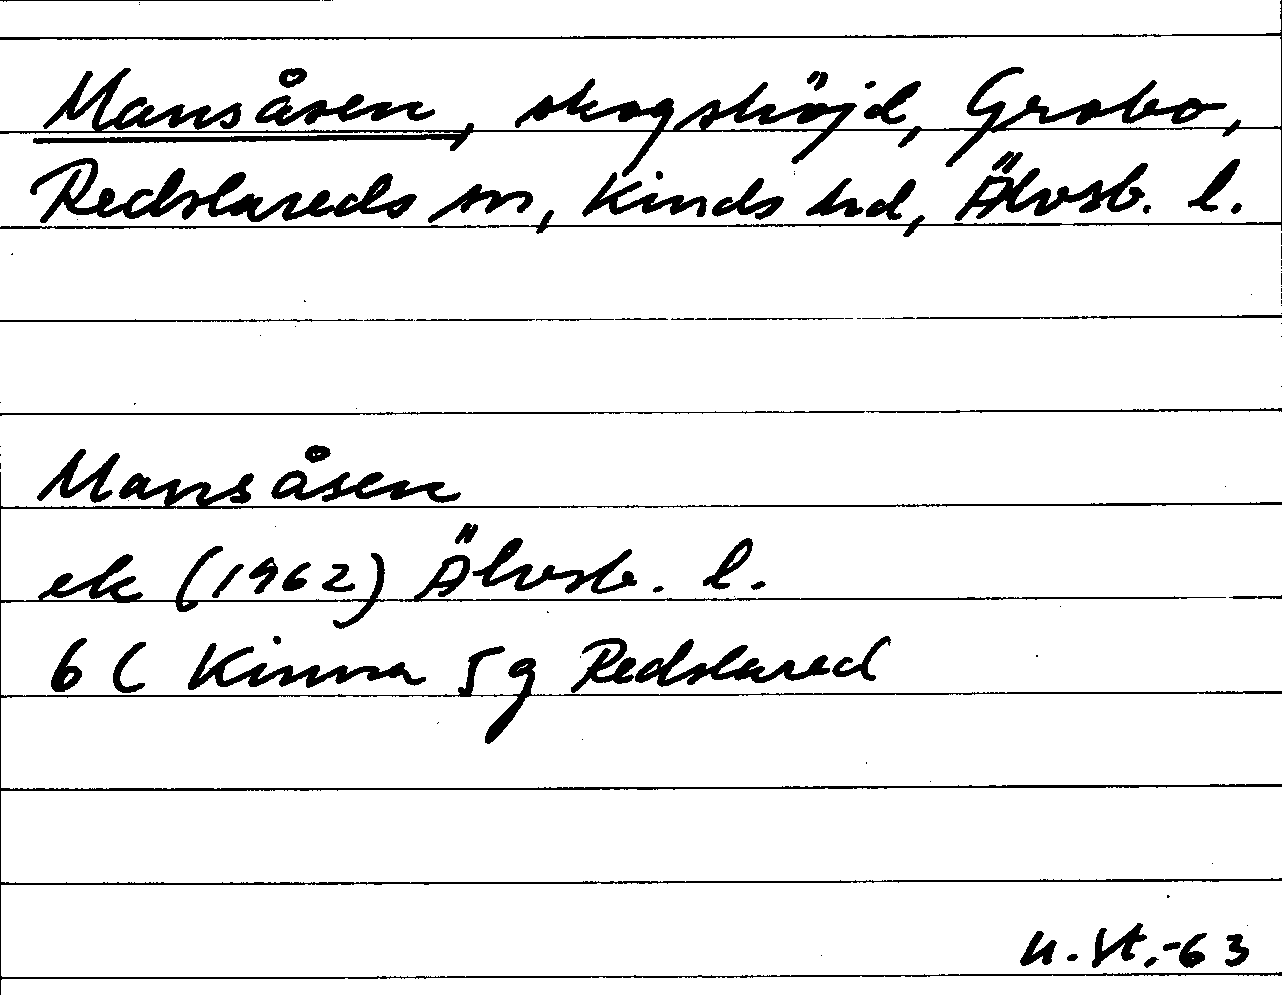 Mansåsen, skogshöjd, Grobo,
Redslareds sn, Kinds hd, Älvsb. l.
Mansåsen
ek (1962) Älvsb. l.
6 C Kinna 5 g Redslared
U. St. -63